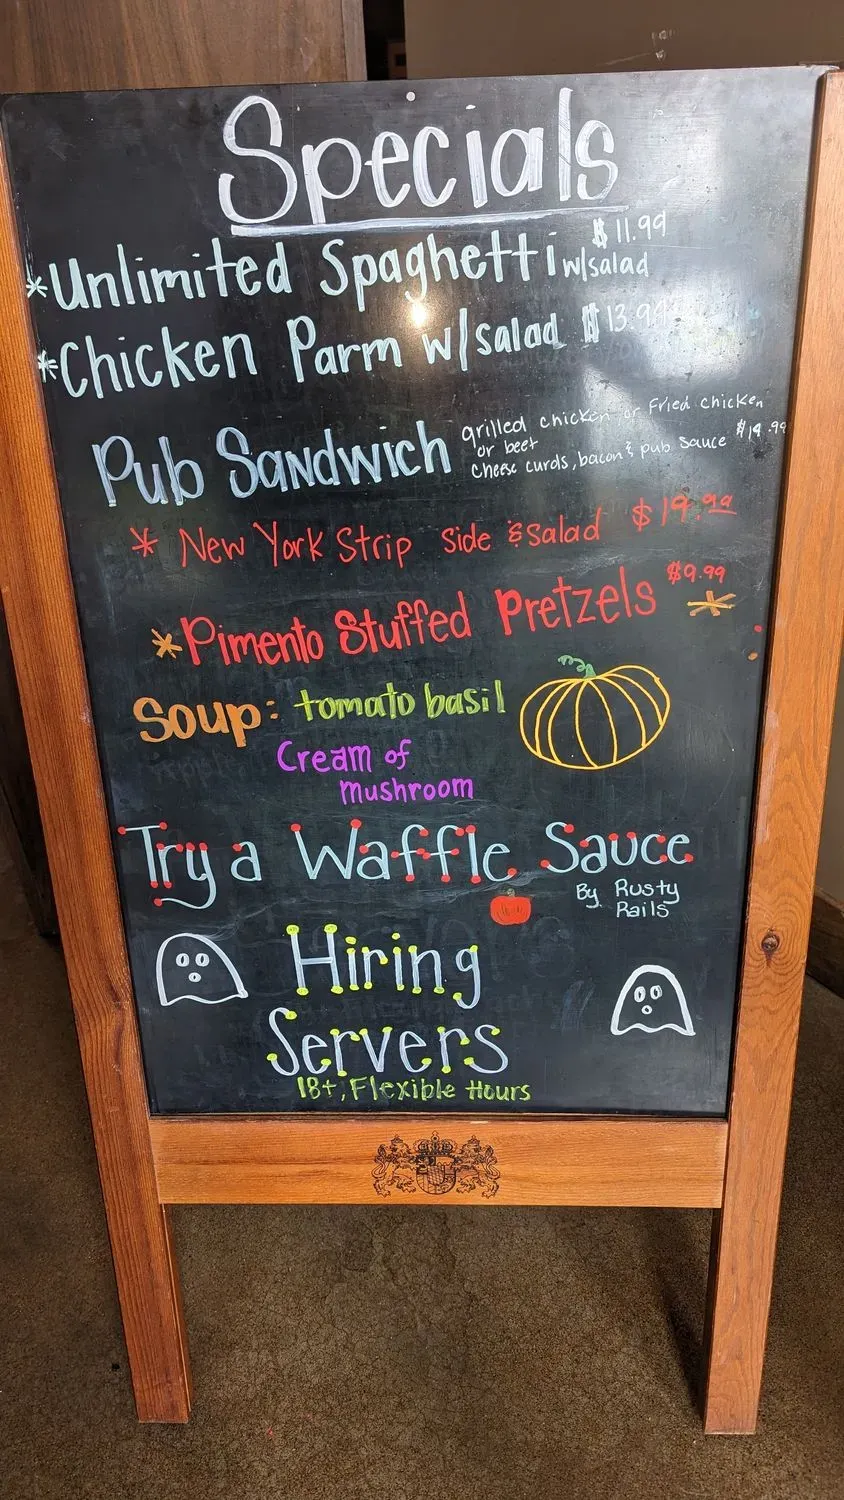 Specials
*Unlimited Spaghetti w/salad $11.99
*Chicken Parm w/salad $13.99
Pub Sandwich grilled chicken, or Fried chicken
or beef
cheese curds, bacon & pub sauce $14.99
* New York Strip Side & Salad $19.99
*Pimento Stuffed Pretzels $9.99 *
Soup: tomato basil
Cream of
mushroom
Try a Waffle Sauce
By Rusty
Rails
Hiring
Servers
18+, Flexible Hours